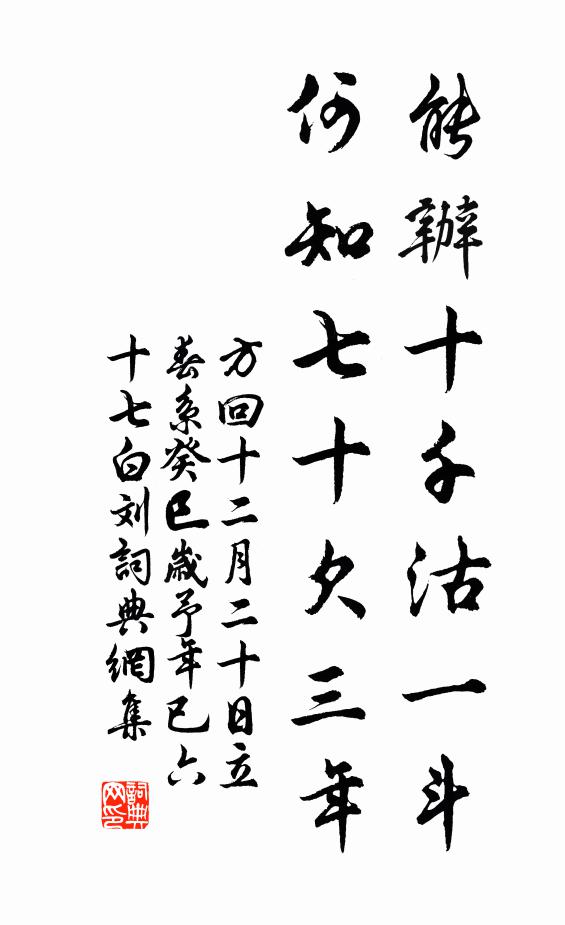 能辦十千沽一斗
何知七十欠三年
方回十二月二十日立
春系癸巳歲予年已六
十七白刘詞典網集
詞典网印